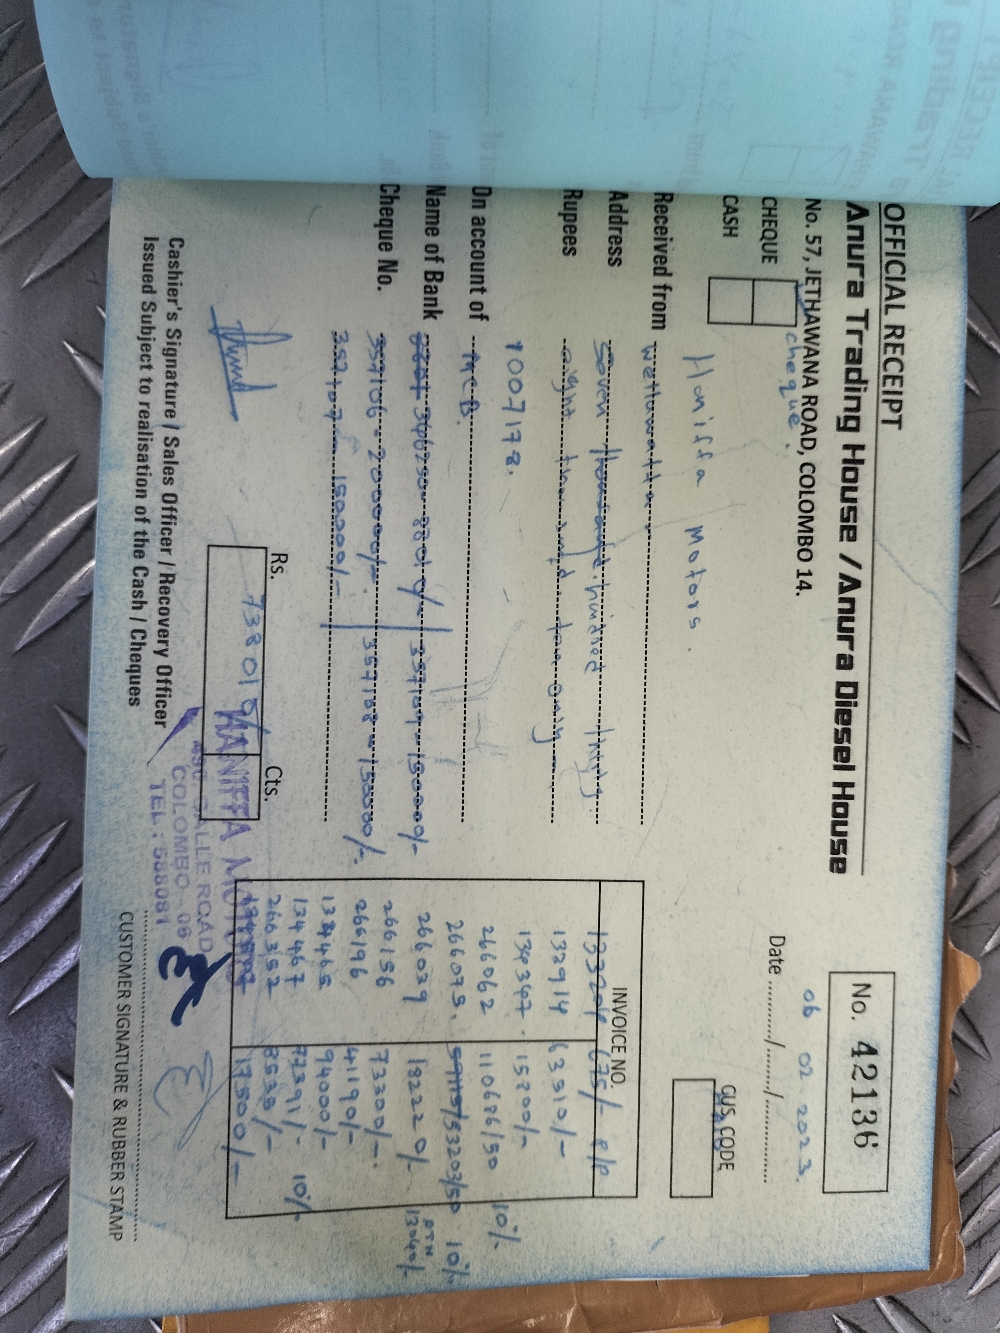 OFFICIAL RECEIPT
Anura Trading House / Anura Diesel House
No. 57, JETHAWANA ROAD, COLOMBO 14.
No. 42136
CHEQUE
cheque.
CASH
06 02 2023.
Date ......../......../................
CUS. CODE
Haniffa Motors.
Received from wellawatta
Address Seven hundred thirty
Rupees eight thousand ten only
1007178.
On account of M.C.B.
Name of Bank 88010/- 357109 - 150000/-
Cheque No. 357106 - 200000/-. 357108 - 150000/-
357107 - 150000/-
Rs. Cts.
738010/-
INVOICE NO.
133204 675/- P/P
133914 63910/-
134347. 15200/-
266062 110686/50 10%
266075. 53203/50 10%
266039 18222 0/- 13040/-
266156 73300/-.
266196 41190/-
134465 94000/-
134467 77391/- 10%
266352 8533/-
17500/-
HANIFFA MOTORS
450 GALLE ROAD
COLOMBO - 06
TEL : 588081
Cashier's Signature / Sales Officer / Recovery Officer
Issued Subject to realisation of the Cash / Cheques
CUSTOMER SIGNATURE & RUBBER STAMP